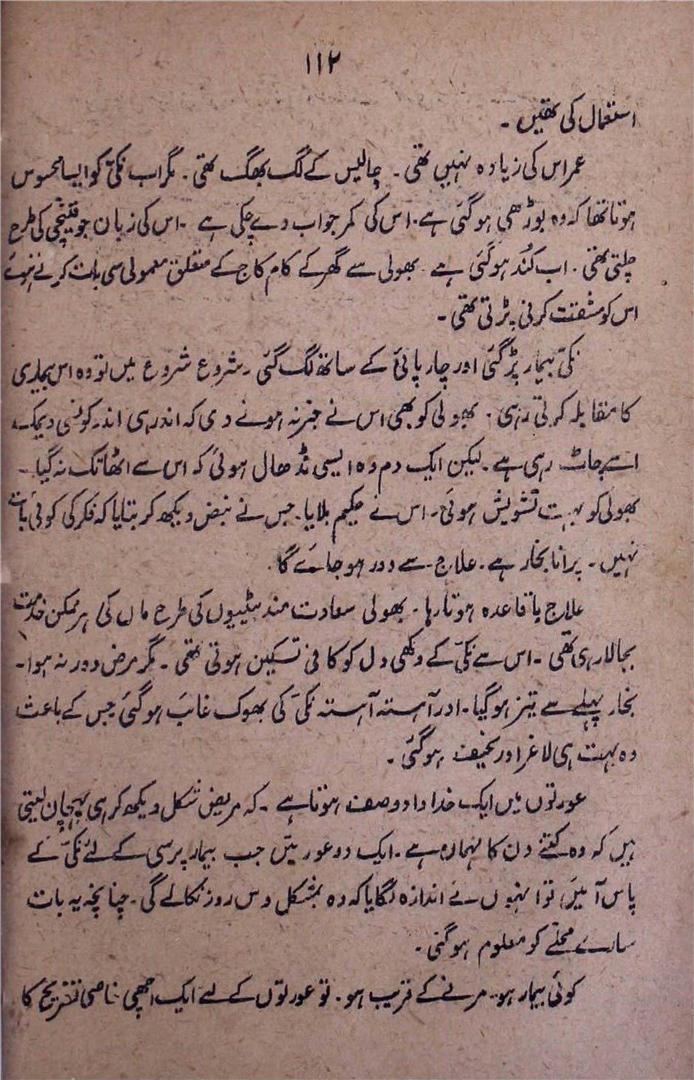 ۱۱۲
استعمال کی تھیں۔
عمر اس کی زیادہ نہیں تھی۔ چالیس کے لگ بھگ تھی۔ مگر اب نکیّ کو ایسا محسوس
ہوتا تھا کہ وہ بوڑھی ہو گئی ہے۔ اس کی کمر جواب دے چکی ہے۔ اس کی زبان جو قینچی کی طرح
چلتی تھی۔ اب کُند ہو گئی ہے۔ بھولی سے گھر کے کام کاج کے متعلق معمولی سی بات کرنے ہوئے
اس کو مشقت کرنی پڑتی تھی۔
نکیّ بیمار پڑ گئی اور چارپائی کے ساتھ لگ گئی۔ شروع شروع میں تو وہ اس بیماری
کا مقابلہ کرتی رہی۔ بھولی کو بھی اس نے خبر نہ ہونے دی کہ اندر ہی اندر کونسی دیمک
اسے چاٹ رہی ہے۔ لیکن ایک دم وہ ایسی نڈھال ہوئی کہ اس سے اٹھا تک نہ گیا۔
بھولی کو بہت تشویش ہوئی۔ اس نے حکیم بلایا۔ جس نے نبض دیکھ کر بتایا کہ فکر کی کوئی بات
نہیں۔ پرانا بخار ہے۔ علاج سے دور ہو جائے گا۔
علاج باقاعدہ ہوتا رہا۔ بھولی سعادت مند بیٹیوں کی طرح ماں کی ہر ممکن خدمت
بجا لا رہی تھی۔ اس سے نکیّ کے دکھی دل کو کافی تسکین ہوتی تھی۔ مگر مرض دور نہ ہوا۔
بخار پہلے سے تیز ہو گیا۔ اور آہستہ آہستہ نکیّ کی بھوک غائب ہو گئی جس کے باعث
وہ بہت ہی لاغر اور نحیف ہو گئی۔
عورتوں میں ایک خداداد وصف ہوتا ہے۔ کہ مریض شکل دیکھ کر ہی پہچان لیتی
ہیں کہ وہ کتنے دن کا مہمان ہے۔ ایک دو عورتیں جب بیمار پرسی کے لئے نکیّ کے
پاس آئیں تو انہوں نے اندازہ لگایا کہ وہ بمشکل دس روز نکالے گی۔ چنانچہ یہ بات
سارے محلے کو معلوم ہو گئی۔
کوئی بیمار ہو۔ مرنے کے قریب ہو۔ تو عورتوں کے لئے ایک اچھی خاصی تفریح کا